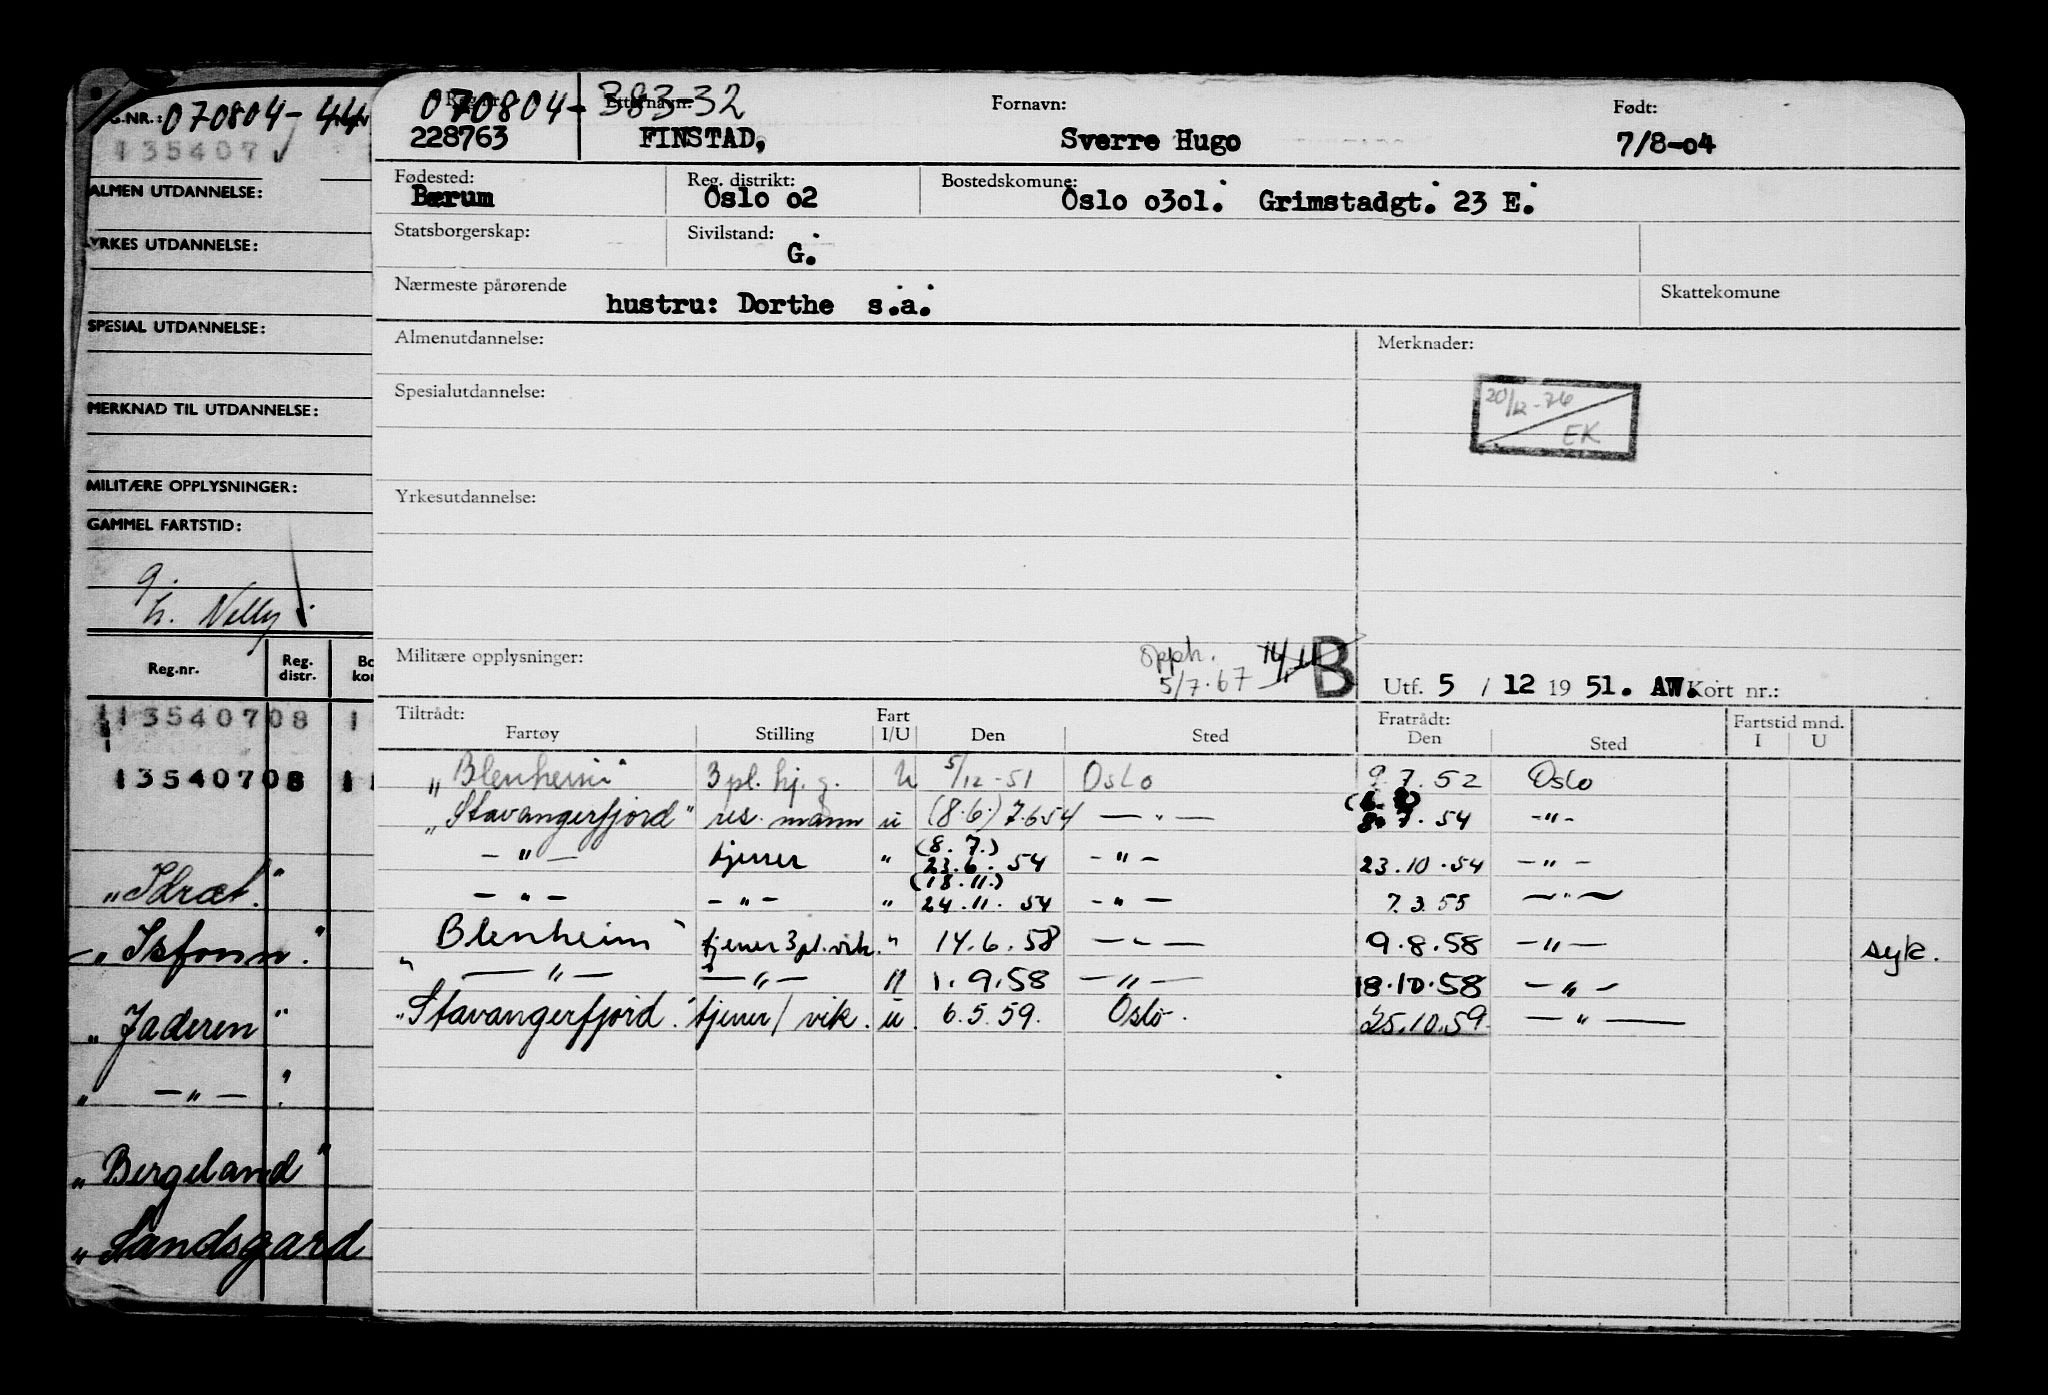 G.NR.: 070804-44
135407 ✓
ALMEN UTDANNELSE:
YRKES UTDANNELSE:
SPESIAL UTDANNELSE:
MERKNAD TIL UTDANNELSE:
MILITÆRE OPPLYSNINGER:
GAMMEL FARTSTID:
g.
h. Nelly
Reg.nr. Reg. distr.
13540708 1
13540708 11
"Idræt."
"Isfonn."
"Jaderen"
" — " — "
"Bergeland"
"Sandsgard
Reg.nr. Etternavn: Fornavn: Født:
070804-383-32
228763 FINSTAD, Sverre Hugo 7/8-o4
Fødested: Reg. distrikt: Bostedskomune:
Bærum Oslo o2 Oslo o3o1. Grimstadgt. 23 E.
Statsborgerskap: Sivilstand:
G.
Nærmeste pårørende Skattekomune
hustru: Dorthe s.a.
Almenutdannelse: Merknader:
20/12-76
EK
Spesialutdannelse:
Yrkesutdannelse:
Militære opplysninger: Opph. 5/7.67 B
Utf. 5 / 12 19 51. AW. Kort nr.:
Tiltrådt: Fratrådt: Fartstid mnd.
Fartøy Stilling Fart I/U Den Sted Den Sted I U
"Blenheim" 3 pl. hj. g. U 5/12-51 Oslo 9.7.52 Oslo
"Stavangerfjord" res. mann u (8.6.) 7.6 54 — " — 8.7.54 -"-
— " — tjener " (8.7.) 23.6.54 -"- 23.10.54 -"-
— " — -"- " (18.11.) 24.11.54 -"- 7.3.55 -"-
"Blenheim" tjener 3 pl. vik. " 14.6.58 -"- 9.8.58 -"- syk.
— " — — " — " 1.9.58 -"- 18.10.58 -"-
"Stavangerfjord." tjener/ vik. u. 6.5.59. Oslo. 25.10.59. — " —